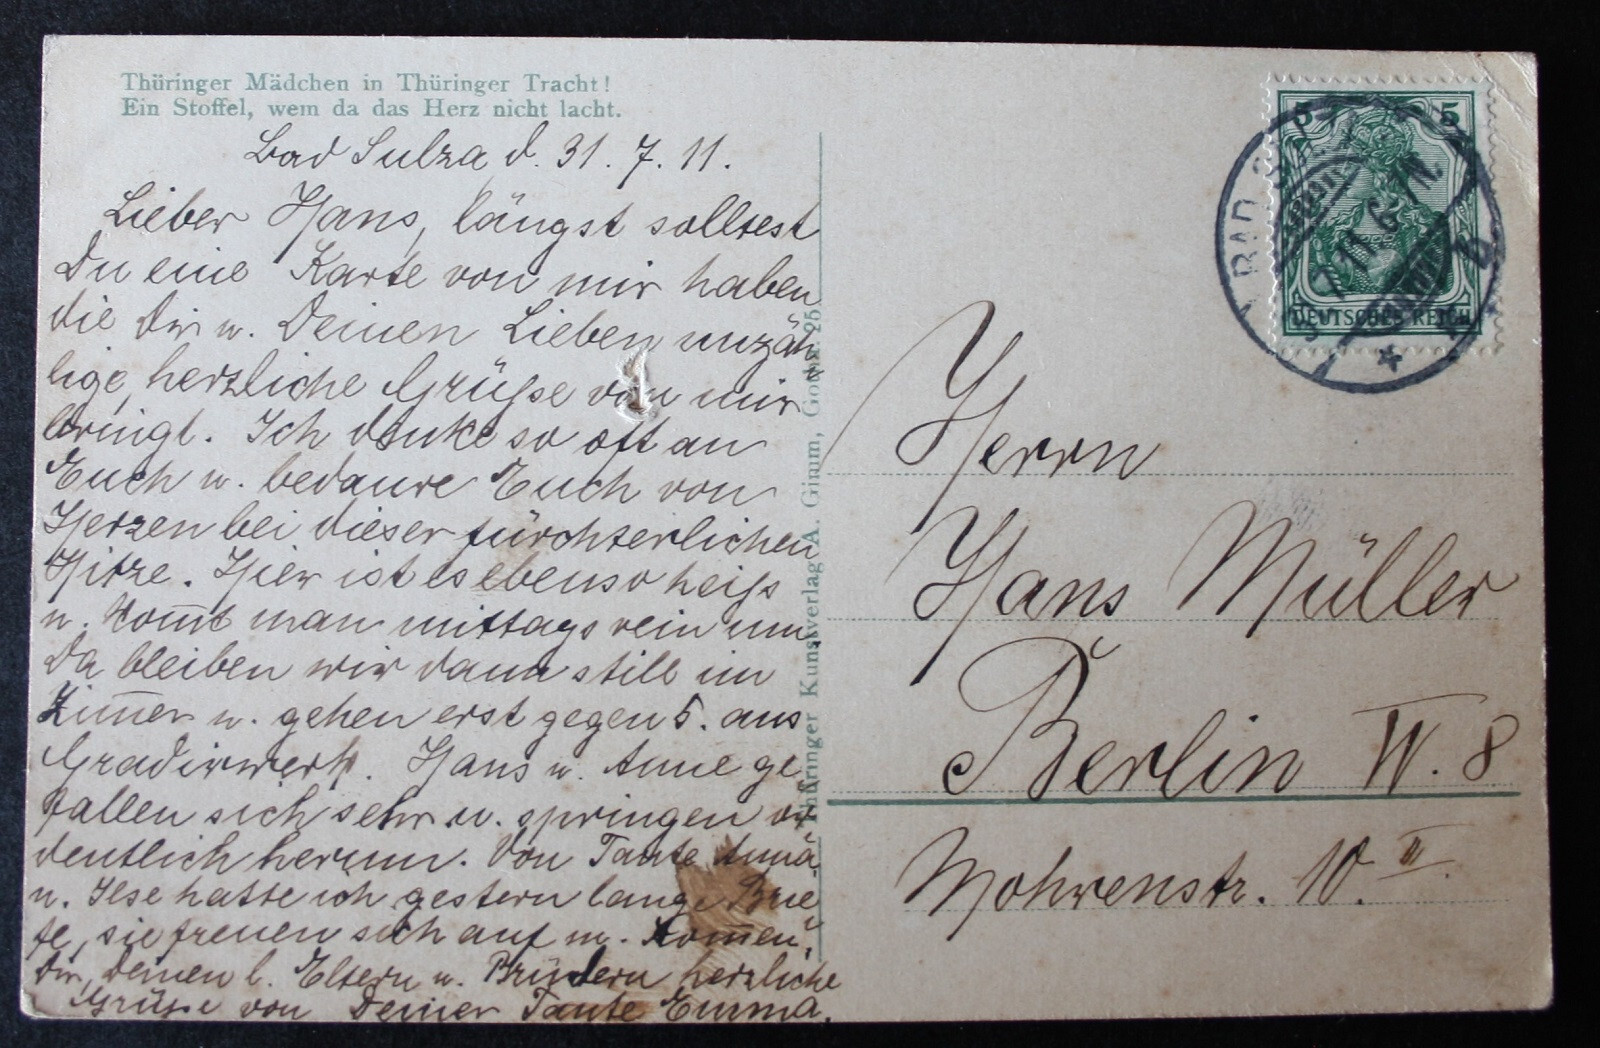 Thüringer Mädchen in Thüringer Tracht!
Ein Stoffel, wem da das Herz nicht lacht.
Bad Sulza d. 31. 7. 11.
Lieber Hans, längst solltest
Du eine Karte von mir haben
die Dir u. Deinen Lieben unzäh
lige, herzliche Grüße von mir
bringt. Ich denke so oft an
Euch u. bedaure Euch von
Herzen bei dieser fürchterlichen
Hitze. Hier ist es ebenso heiß
u. kom̄t man mittags rein um.
Da bleiben wir dann still im
Zim̄er u. gehen erst gegen 5. ans
Gradirwerk. Hans u. Anne ge
fallen sich sehr u. springen or
dentlich herum. Von Tante Anna
u. Ilse hatte ich gestern lange Brie
fe, sie freuen sich auf m. Kom̄en.
Dir, Deinen l. Eltern u. Brüdern herzliche
Grüsse von Deiner Tante Emma.
Thüringer Kunstverlag A. Gimm, Gotha. 25
5 5
BAD
7.11.6
DEUTSCHES REICH
Herrn
Hans Müller
Berlin W. 8
Mohrenstr. 10. II.